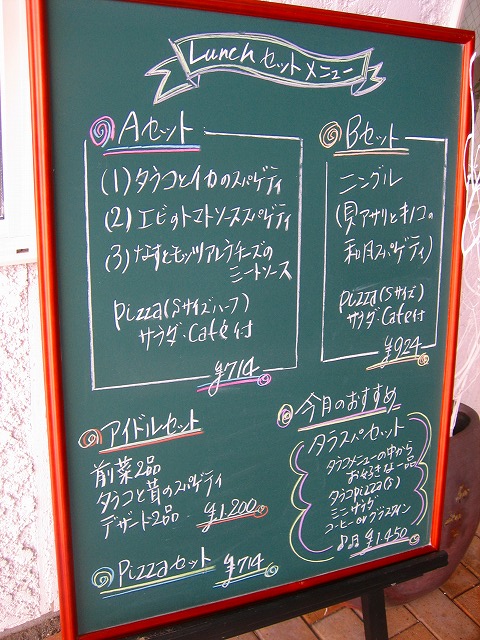 Lunchセットメニュー
Aセット
(1) タラコとイカのスパゲティ
(2) エビのトマトソーススパゲティ
(3) なすとモッツアレラチーズの
ミートソース
pizza(Sサイズハーフ)
サラダ・Café付
¥714
Bセット
ニングル
(貝アサリとキノコの
和風スパゲティ)
pizza(Sサイズ)
サラダ・Café付
¥924
アイドルセット
前菜2品
タラコと昔のスパゲティ
デザート2品
¥1.200
Pizzaセット ¥714
今月のおすすめ
タラスパセット
タラコメニューの中から
お好きな一品
タラコpizza(S)
ミニサラダ
コーヒーorグラスワイン
8月 ¥1.450